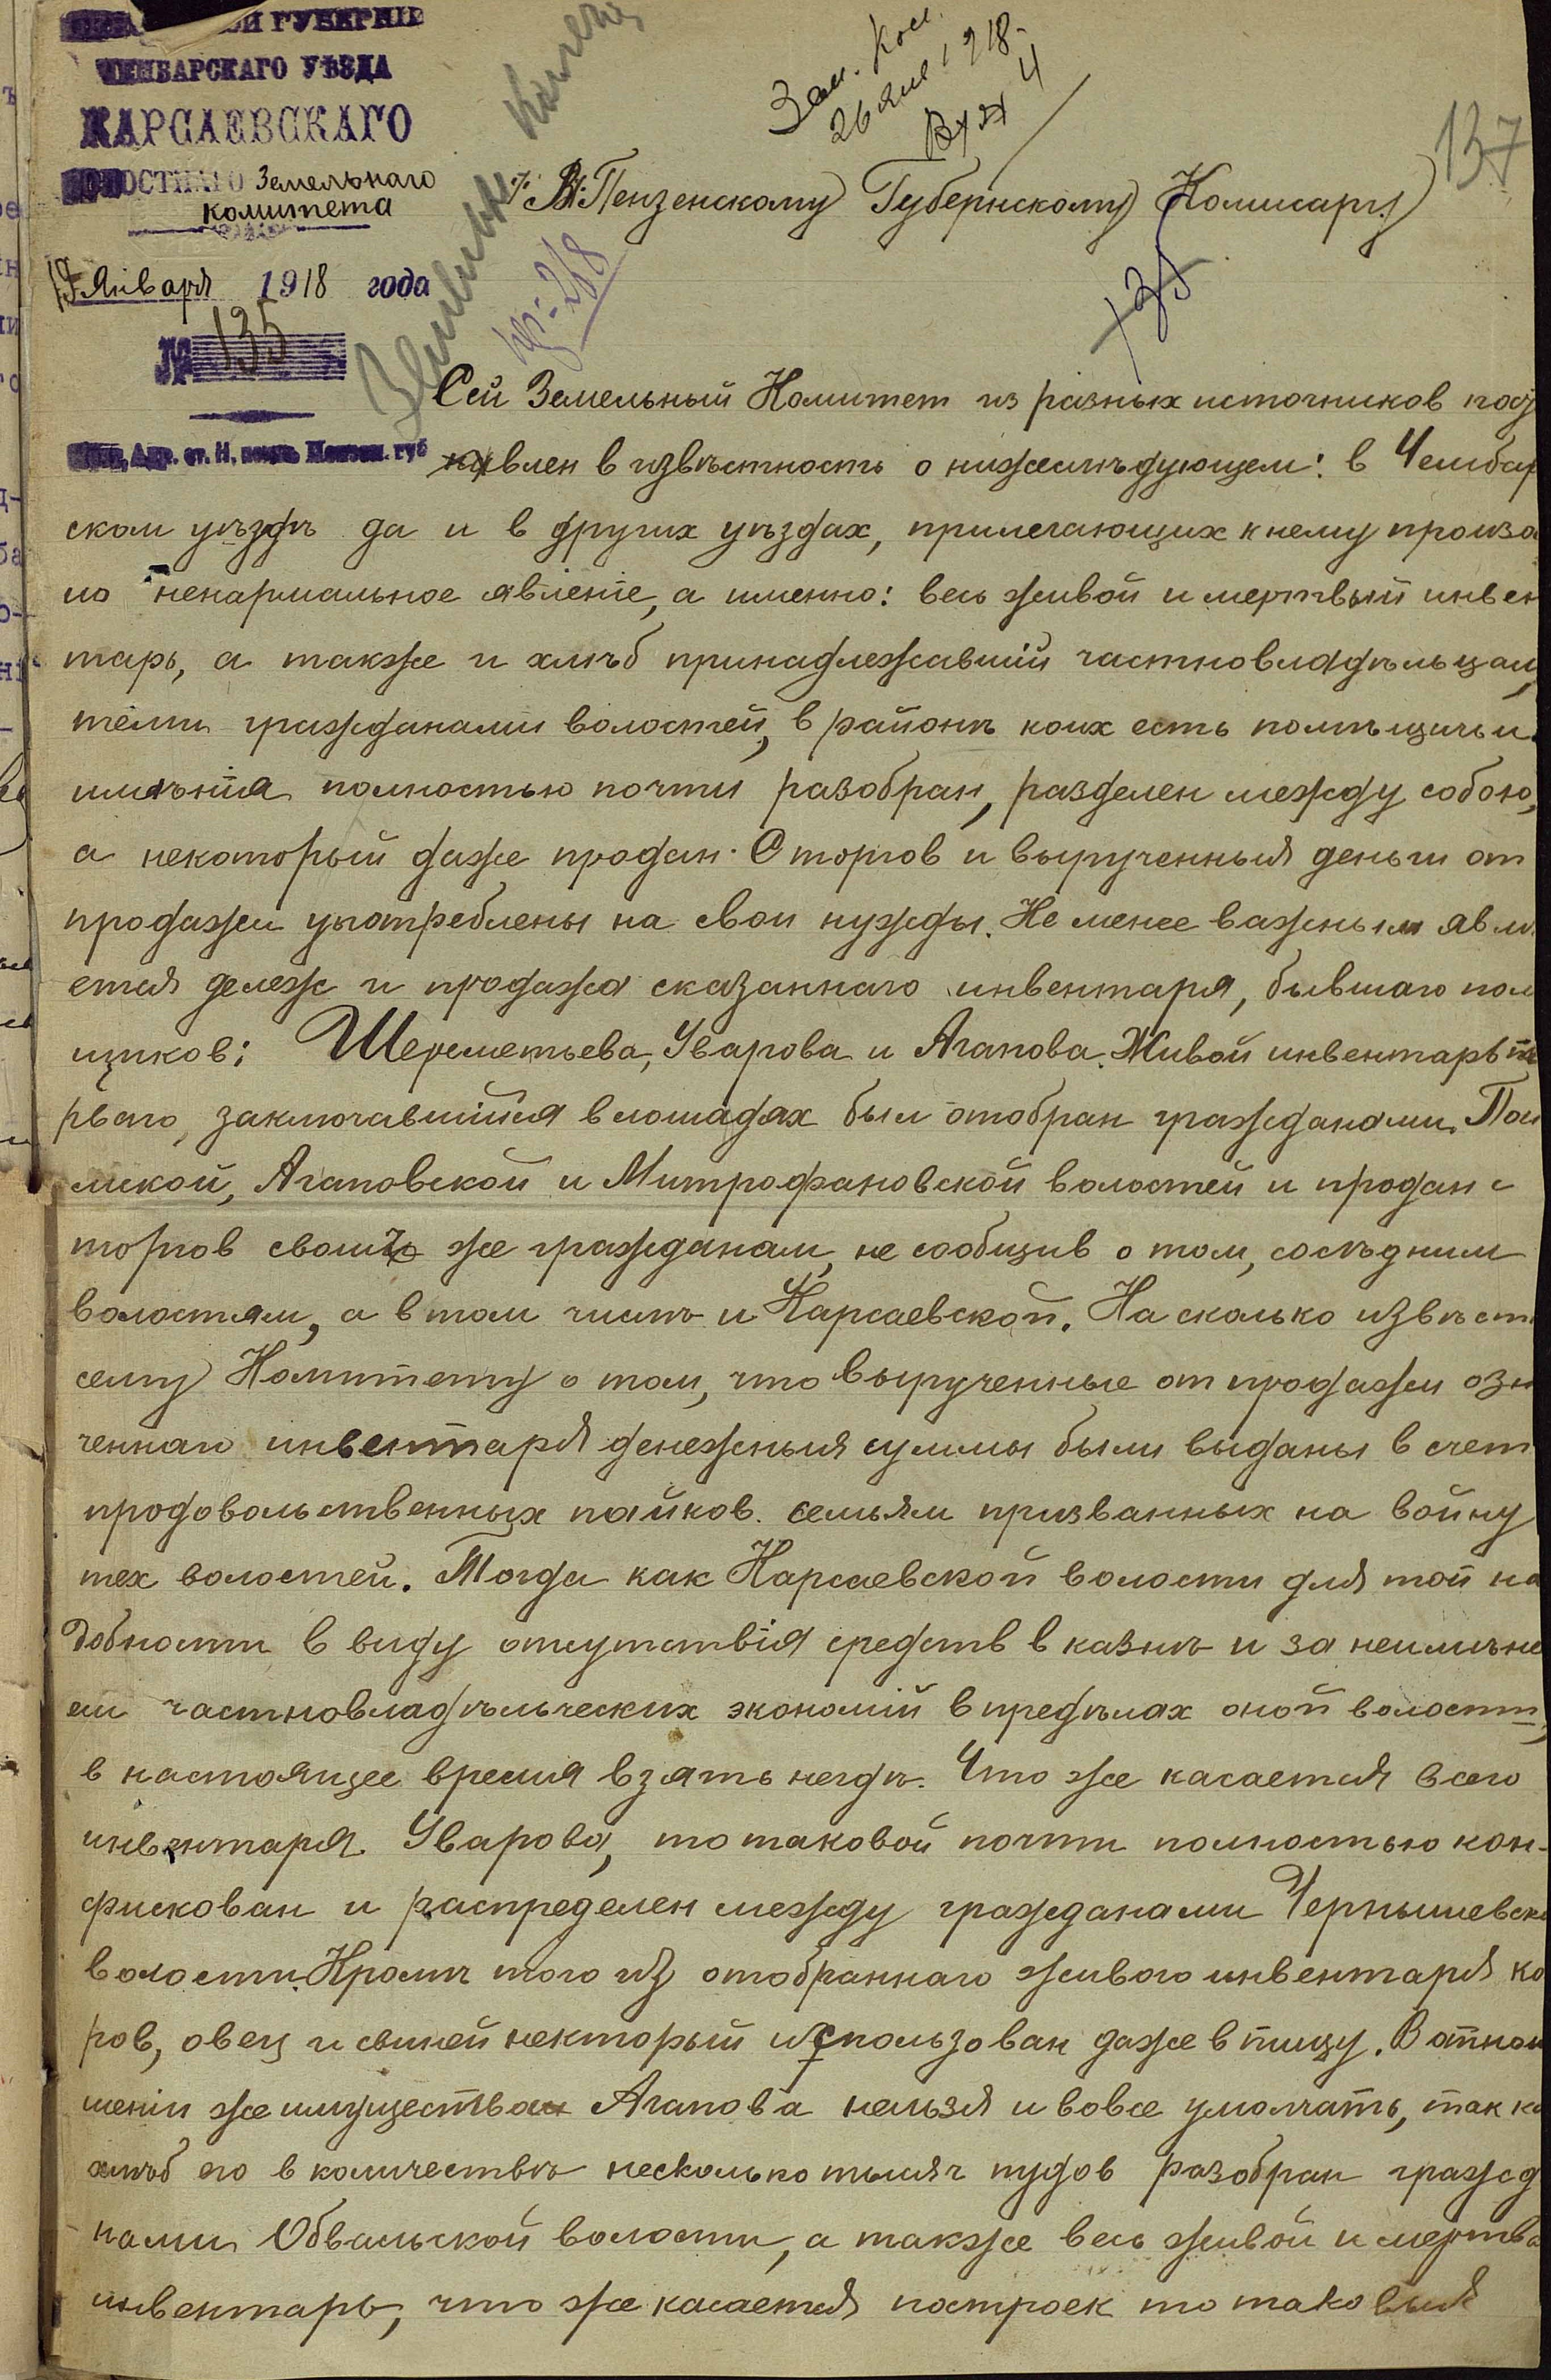 ГУБЕРНІИ
ЧЕМБАРСКАГО УѢЗДА
КАРСАЕВСКАГО
ВОЛОСТНАГО Земельнаго
комитета
19 Января 1918 года
№ 135
Зем. Ком.
26 Янв 1918
Вх № 4
137
Г. Пензенскому Губернскому Комисару
135
Сей Земельный Комитет из разных источников пос
влен в извѣстность о нижеслѣдующем: в Чембар
ском уѣздѣ да и в других уѣздах, прилегающих к нему произо
ло ненармальное явленіе, а именно: весь живой и мертвый инвен
тарь, а также и хлѣб принадлежавшій частновладѣльцам,
теми гражданами волостей, в районѣ коих есть помѣщичьи
имѣнія полностью почти разобран, разделен между собою,
а некоторый даже продан. С торгов и вырученныя деньги от
продажи употреблены на свои нужды. Не менее важным явля
ется дележ и продажа сказаннаго инвентаря, бывшаго пом
щиков: Шереметьева, Уварова и Агапова. Живой инвентарь пе
рваго, заключавшійся в лошадях был отобран гражданами Пои
мской, Агаповской и Митрофановской волостей и продан с
торгов своим же гражданам, не сообщив о том, сосѣдним
волостям, а в том числѣ и Карсаевской. На сколько извѣст
сему Комитету о том, что вырученные от продажи озн
ченнаго инвентаря денежныя суммы были выданы в счет
продовольственных пайков семьям призванных на войну
тех волостей. Тогда как Карсаевской волости для той на
добности в виду отсутствія средств в казнѣ и за неимѣні
ем частновладѣльческих экономій в предѣлах оной волости,
в настоящее время взять негдѣ. Что же касается всего
инвентаря Уварова, то таковой почти полностью кон-
фискован и распределен между гражданами Чернышевско
волости. Кромѣ того из отобраннаго живого инвентаря ко
ров, овец и свиней некторый использован даже в пищу. В отнош
шеніи же имущества Агапова нельзя и вовсе умолчать, так ка
хлѣб его в количествѣ несколько тысяч пудов разобран гражд
нами Обвальской волости, а также весь живой и мертвы
инвентарь, что же касается построек то таковыя